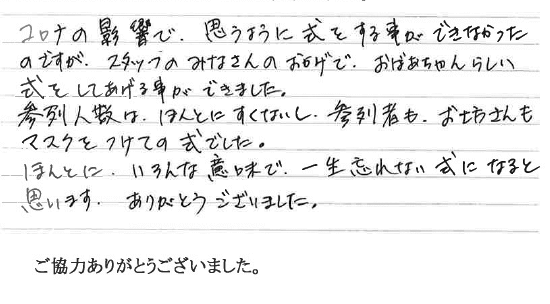 コロナの影響で、思うように式をする事ができなかった
のですが、スタッフのみなさんのおかげで、おばあちゃんらしい
式をしてあげる事ができました。
参列人数は、ほんとにすくないし、参列者も、お坊さんも
マスクをつけての式でした。
ほんとに、いろんな意味で、一生忘れない式になると
思います。ありがとうございました。
ご協力ありがとうございました。